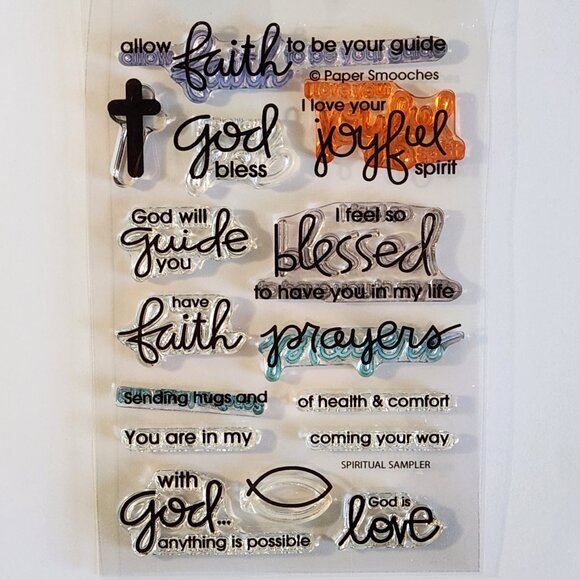 allow faith to be your guide
© Paper Smooches
god
bless
I love your
joyful
spirit
God will
guide
you
I feel so
blessed
to have you in my life
have
faith
prayers
Sending hugs and
of health & comfort
You are in my
coming your way
SPIRITUAL SAMPLER
with
God...
anything is possible
God is
love